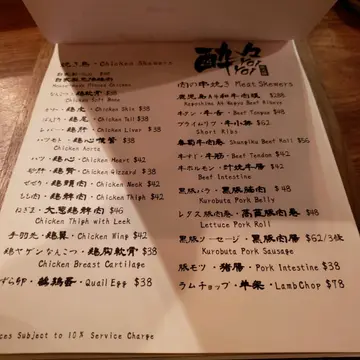 焼き鳥・Chicken Skewers
$38
House-made Minced Chicken
なんこつ・雞軟骨 $38
Chicken Soft Bone
雞皮・Chicken Skin $38
雞尾・Chicken Tail $38
レバー・雞肝・Chicken Liver $38
$38
Chicken Aorta
ハツ・雞心・Chicken Heart $42
砂肝・雞腎・Chicken Gizzard $38
せせり・雞頸肉・Chicken Neck $42
もも肉・雞髀肉・Chicken Thigh $42
ねぎま・大葱雞髀肉 $46
Chicken Thigh with Leek
手羽先・雞翼・Chicken Wing $42
雞ヤゲンなんこつ・雞胸軟骨 $38
Chicken Breast Cartilage
ずら卵・鵪鶉蛋・Quail Egg $38
ces Subject to 10% Service Charge
酔々
Yoi Yoi
肉の串焼き Meat Skewers
鹿児島A4和牛肉眼 $288
Kagoshima A4 Wagyu Beef Ribeye
牛タン・牛舌・Beef Tongue $48
プライムリブ・牛小排 $62
Short Ribs
Beef Roll $56
牛すじ・牛筋・Beef Tendon $42
牛ホルモン・牛腸 $42
Beef Intestine
黒豚バラ・黑豚腩肉 $48
Kurobuta Pork Belly
レタス豚肉巻・豚肉卷 $48
Lettuce Pork Roll
黒豚ソーセージ・黑豚肉腸 $62/3種
Kurobuta Pork Sausage
豚モツ・豬腸・Pork Intestine $38
ラムチョップ・羊架・Lamb Chop $78